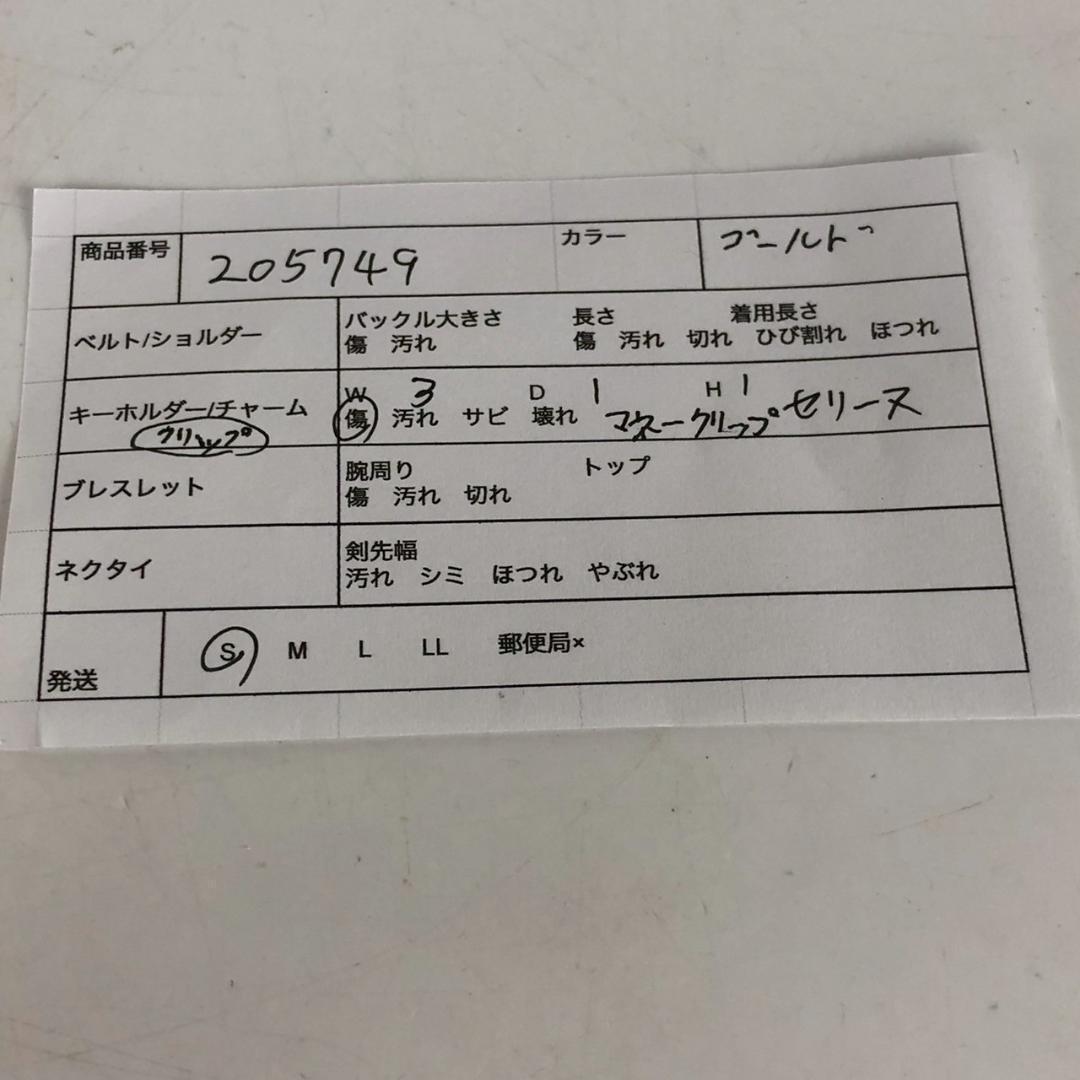 商品番号 205749 カラー ゴールド
ベルト/ショルダー バックル大きさ 長さ 着用長さ
傷 汚れ 傷 汚れ 切れ ひび割れ ほつれ
キーホルダー/チャーム W 3 D 1 H 1
クリップ 傷 汚れ サビ 壊れ マネークリップ セリーヌ
ブレスレット 腕周り トップ
傷 汚れ 切れ
ネクタイ 剣先幅
汚れ シミ ほつれ やぶれ
発送 S M L LL 郵便局×